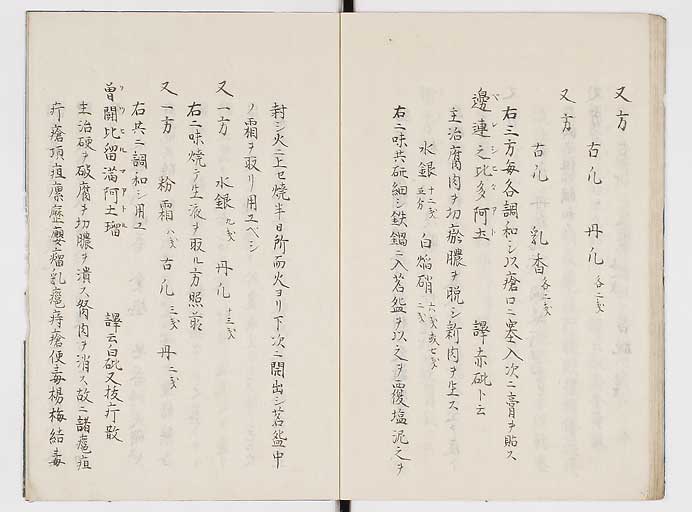 又方
古凢 丹凢 各二戔
又方
古凢 乳香 各二戔
右三方毎各調和シ以瘡口ニ塞入次ニ膏ヲ貼ス
邊連之比多阿土 譯赤砒ト云
主治腐肉ヲ切瘀膿ヲ脱シ新肉ヲ生ス
水銀 十二戔五分 白焔硝 六戔或七戔二戔
右二味共研細シ鉄鍋ニ入茗盌ヲ以之ヲ覆塩泥之ヲ
封シ火ニ上セ焼半日所而火ヨリ下次ニ開出シ茗盌中
ノ霜ヲ取リ用ユベシ
又一方 水銀 九戔 丹凢 十三戔
右二味焼テ生液ヲ取ル方照前
又一方 粉霜 八戔 古凢 三戔 丹 二戔
右共ニ調和シ用ユ
曽闘比留満阿土瑠 譯云白砒又抜疔散
主治硬ヲ破腐ヲ切膿ヲ潰ス努肉ヲ消ス故ニ諸癰疽
疔瘡頂疽瘰癧癭瘤乳癰痔瘡便毒楊梅結毒